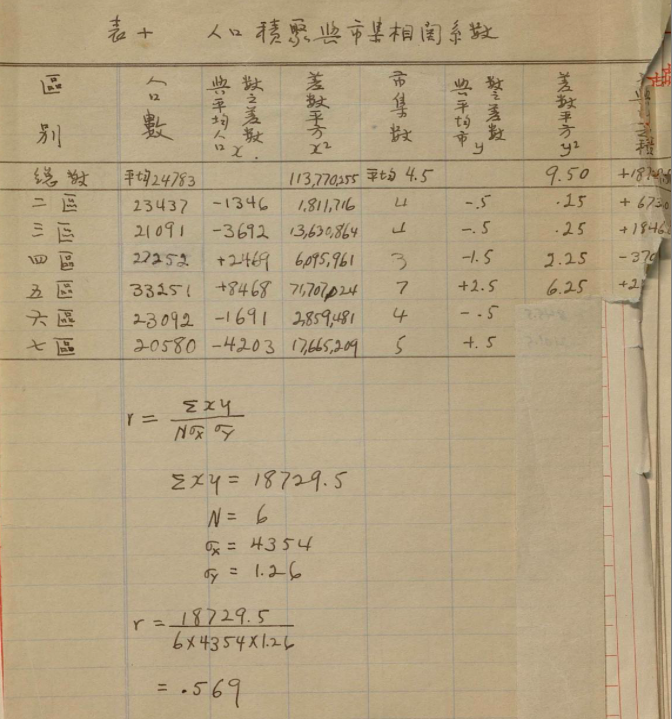 表十 人口積聚與市集相関系數
區別 人口數 與平均人口數之差數 x 差數平方 x² 市集數 與平均市數之差數 y 差數平方 y²
總數 平均24783 113,770,255 平均 4.5 9.50
二區 23437 -1346 1,811,716 4 -.5 .25
三區 21091 -3692 13,630,864 4 -.5 .25 +1846
四區 27252 +2469 6,095,961 3 -1.5 2.25 -370
五區 33251 +8468 71,707,024 7 +2.5 6.25 +2
六區 23092 -1691 2,859,481 4 -.5
七區 20580 -4203 17,665,209 5 +.5
r = Σxy / Nσx σy
Σxy = 18729.5
N = 6
σx = 4354
σy = 1.26
r = 18729.5 / 6×4354×1.26
= .569